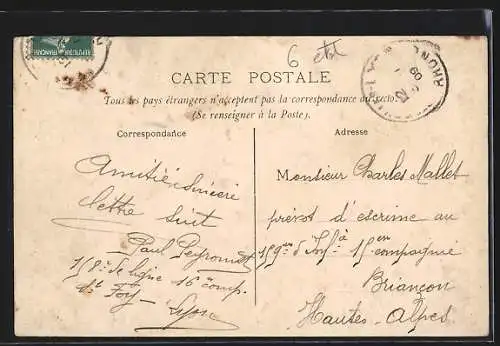 6 ctbl
RHONE
09
REPUBLIQUE FRANCAISE
CARTE POSTALE
Tous les pays étrangers n'acceptent pas la correspondance au recto.
(Se renseigner à la Poste).
Correspondance
Adresse
Amitié sincère
lettre suit
Paul Peyromat
158e de ligne 16e comp.
St Foy - Lyon
Monsieur Charles Mallet
prévot d'escrime au
159em d'Infie à 15em compagnie
Briançon
Hautes-Alpes